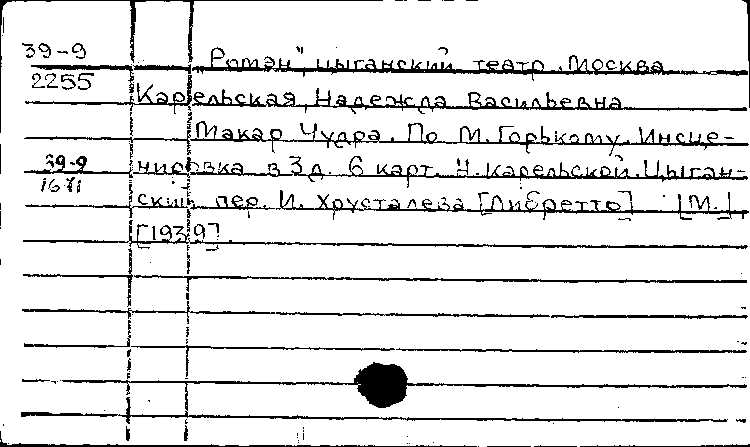 39-9 „Ромэн", цыганский театр. Москва
2255
Карельская, Надежда Васильевна
Макар Чудра. По М. Горькому. Инсце-
39-9 нировка в 3 д. 6 карт. Н. Карельской. Цыган-
1671
ский пер. И. Хрусталева [Либретто] [М.],
[1939].